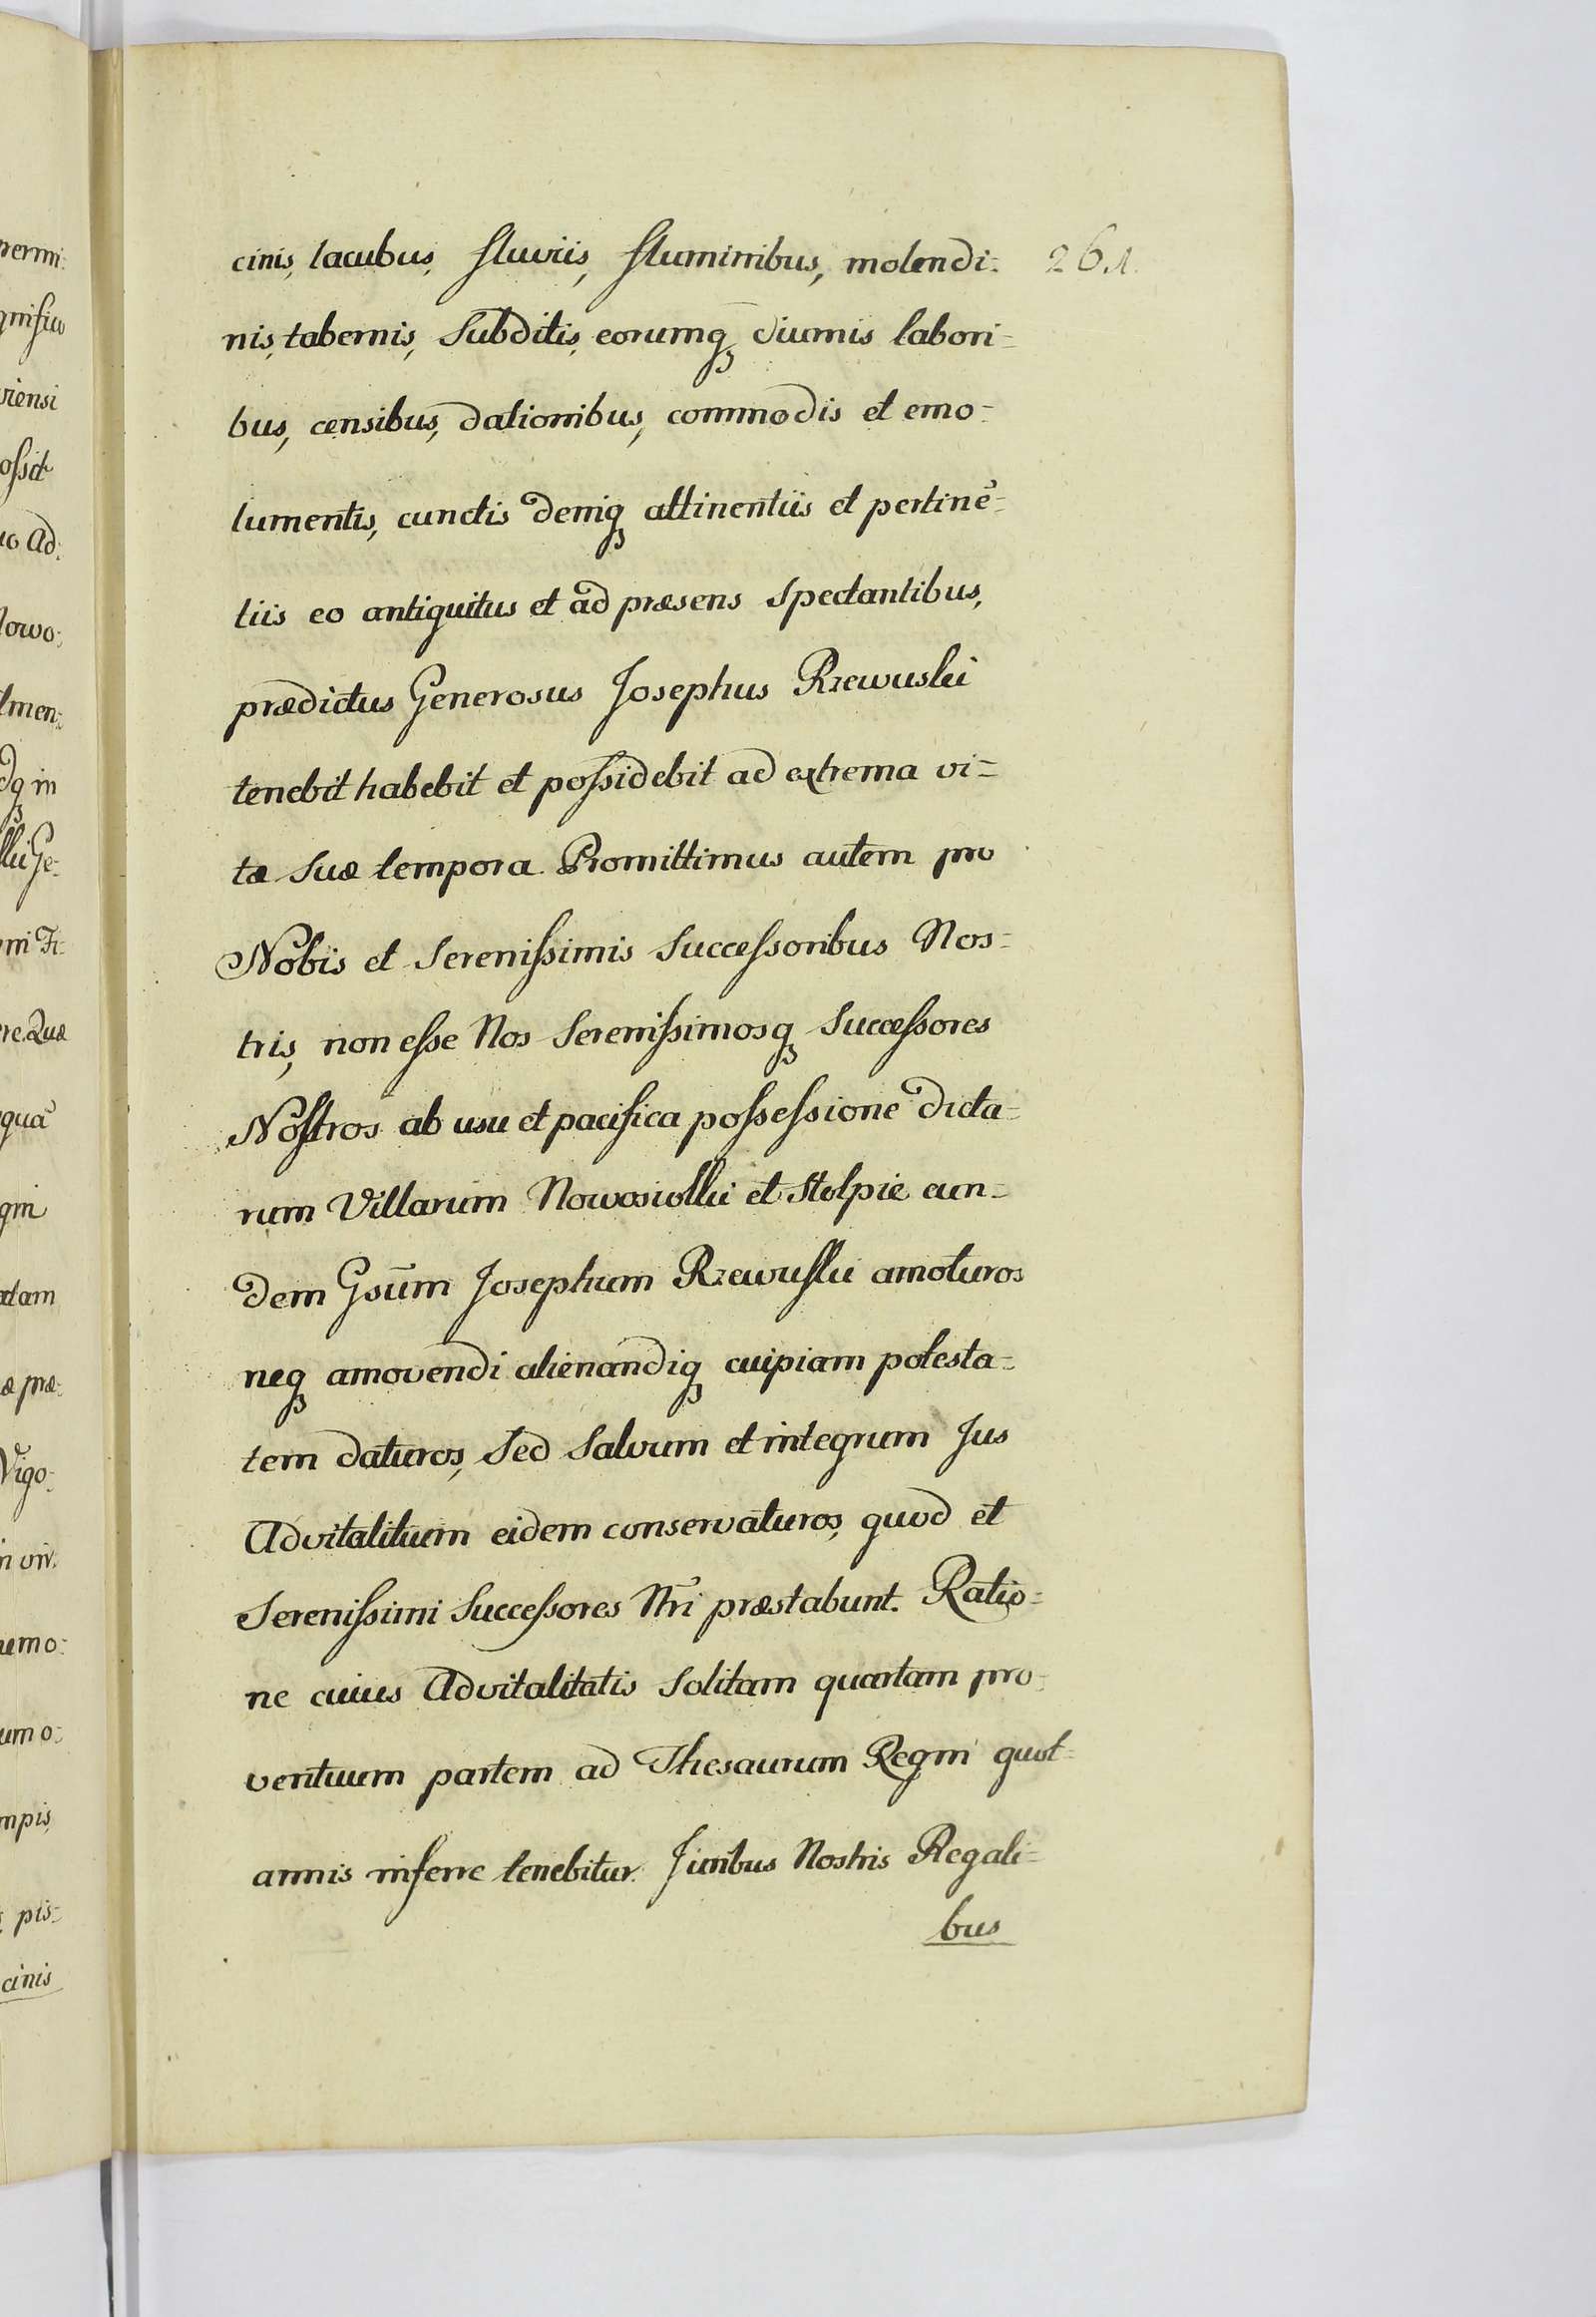 cinis, lacubus, fluviis, fluminibus, molendi- 261.
nis, tabernis, Subditis, eorumq₃ diurnis labori-
bus, censibus, dationibus, commodis et emo-
lumentis, cunctis deniq₃ attinentiis et pertinē-
tiis eo antiquitus et ad præsens spectantibus,
prædictus Generosus Josephus Rzewuski
tenebit habebit et possidebit ad extrema vi-
tæ Suæ tempora. Promittimus autem pro
Nobis et Serenissimis Successoribus Nos-
tris, non esse Nos Serenissimosq₃ Successores
Nostros ab usu et pacifica possessione dicta-
rum Villarum Nowosiolki et Stolpie eun-
dem Gsūm Josephum Rzewuski amoturos
neq₃ amovendi alienandiq₃ cuipiam potesta-
tem daturos, Sed Salvum et integrum Jus
Advitalitium eidem conservaturos, quod et
Serenissimi Successores Nrī præstabunt. Ratio-
ne cuius Advitalitatis Solitam quartam pro-
ventuum partem ad Thesaurum Regni quot-
annis inferre tenebitur. Juribus Nostris Regali-
bus